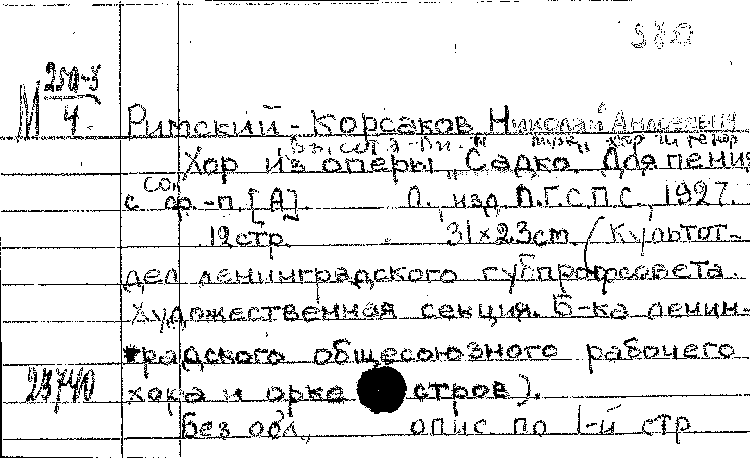 380
М 250-3/4.
Римский-Корсаков Николай Андреевич
муж. хор и тенор
Хор из оперы "Садко. Для пения
с сопр.-п. [А]. Л. изд. Л.Г.С.П.С., 1927.
12 стр. 31 x 23 cm (Культот-
дел ленинградского губпрофсовета.
Художественная секция. Б-ка ленин-
градского общесоюзного рабочего
23740 хора и орке стров).
без обл., опис по 1-й стр